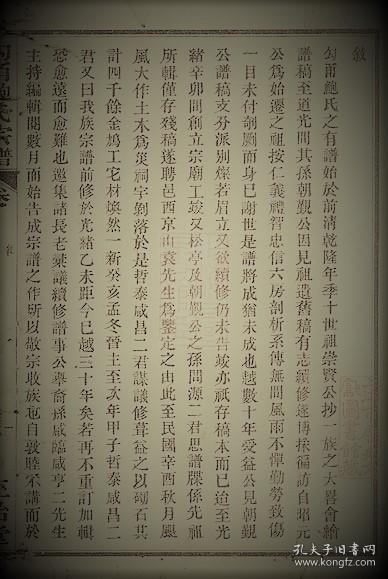 敘
勾甬鮑氏之有譜始於前清乾隆年季十世祖崇賢公抄一族之大畧會繪
譜稿至道光間其孫朝覲公因見祖遺舊稿有志續修遂博採徧訪自昭元
公爲始遷之祖按仁義禮智忠信六房剖析系傳無間風雨不憚勤勞致傷
一目未付剞劂而身已謝世是譜將成猶未成也越數十年受益公見朝覲
公譜稿支分派別燦若眉立又欲續修仍未告竣亦祇存稿本而已迨至光
緒辛卯間創立宗廟工竣又松亭及朝覲公之孫問源二君思譜牒係先祖
所輯僅存殘稿遂聘邑西京山袁先生爲鑒定之由此至民國辛酉秋月颶
風大作土木爲災祠宇剝落於是哲泰咸昌二君謀議修葺益之以砌石其
計四千餘金鳩工宅材煥然一新癸亥孟冬晉主至次年甲子哲泰咸昌二
君又曰我族宗譜前修於光緒乙未距今已越三十年矣若再不重訂加輯
恐愈遠而愈難也邀集諸長老裝議續修譜事公舉裔孫咸臨咸亨二先生
主持編輯閱數月而始告成宗譜之作所以敬宗收族苑自敦睦不講而於
孔夫子旧书网
kongfz.com